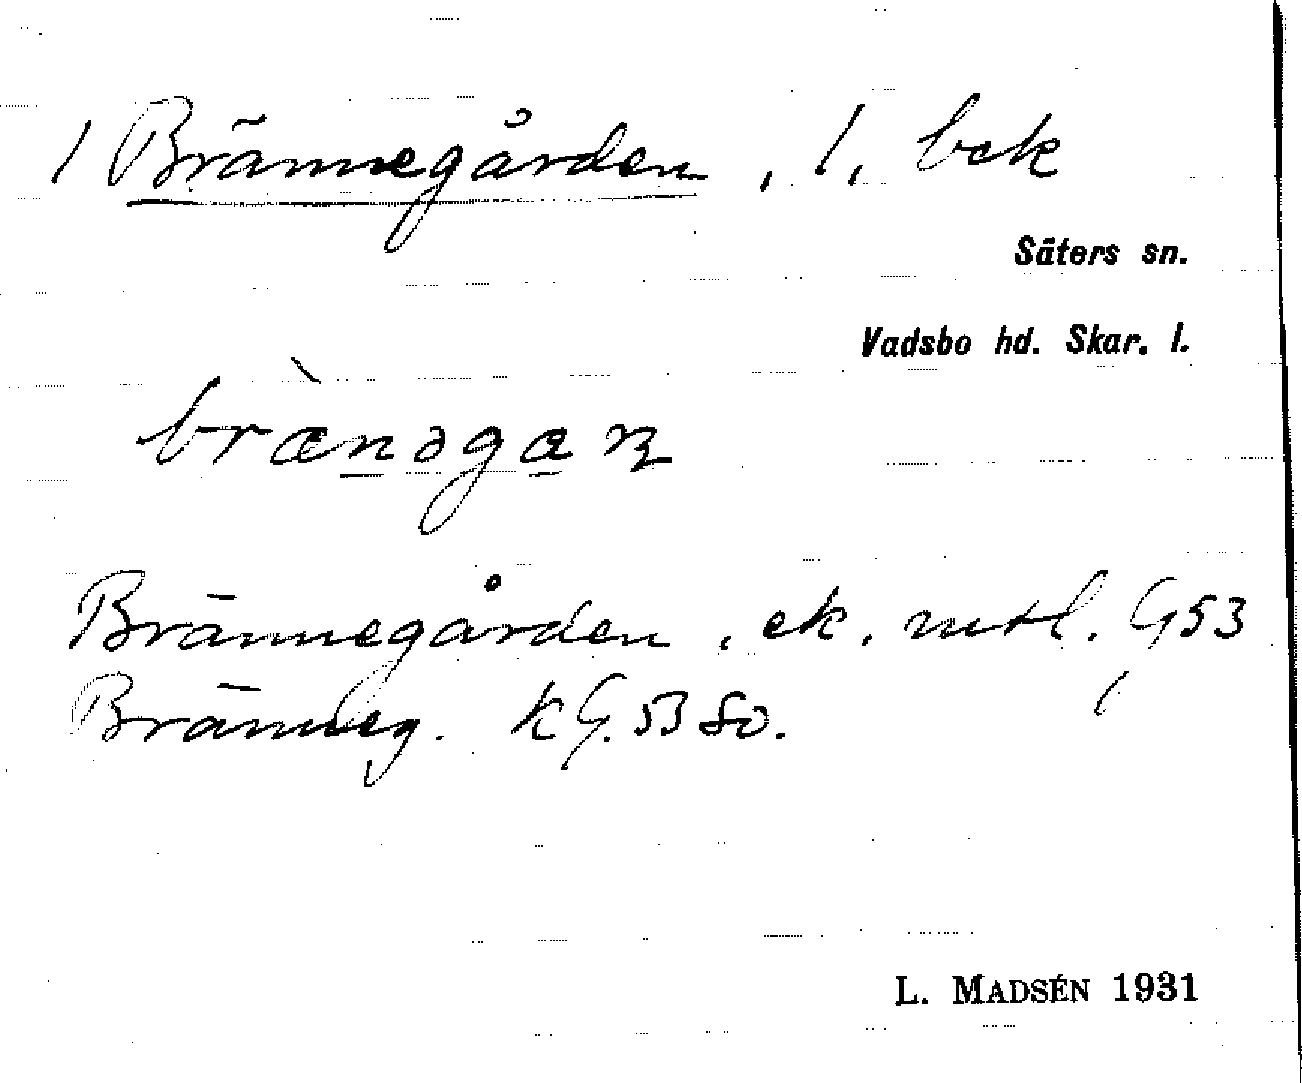 1 Brännegården, l, bek
Säters sn.
Vadsbo hd. Skar. l.
brænəgaɳ
Brännegården, ek. mtl. G53
Bränneg. k G. 53 So.
L. MADSÉN 1931